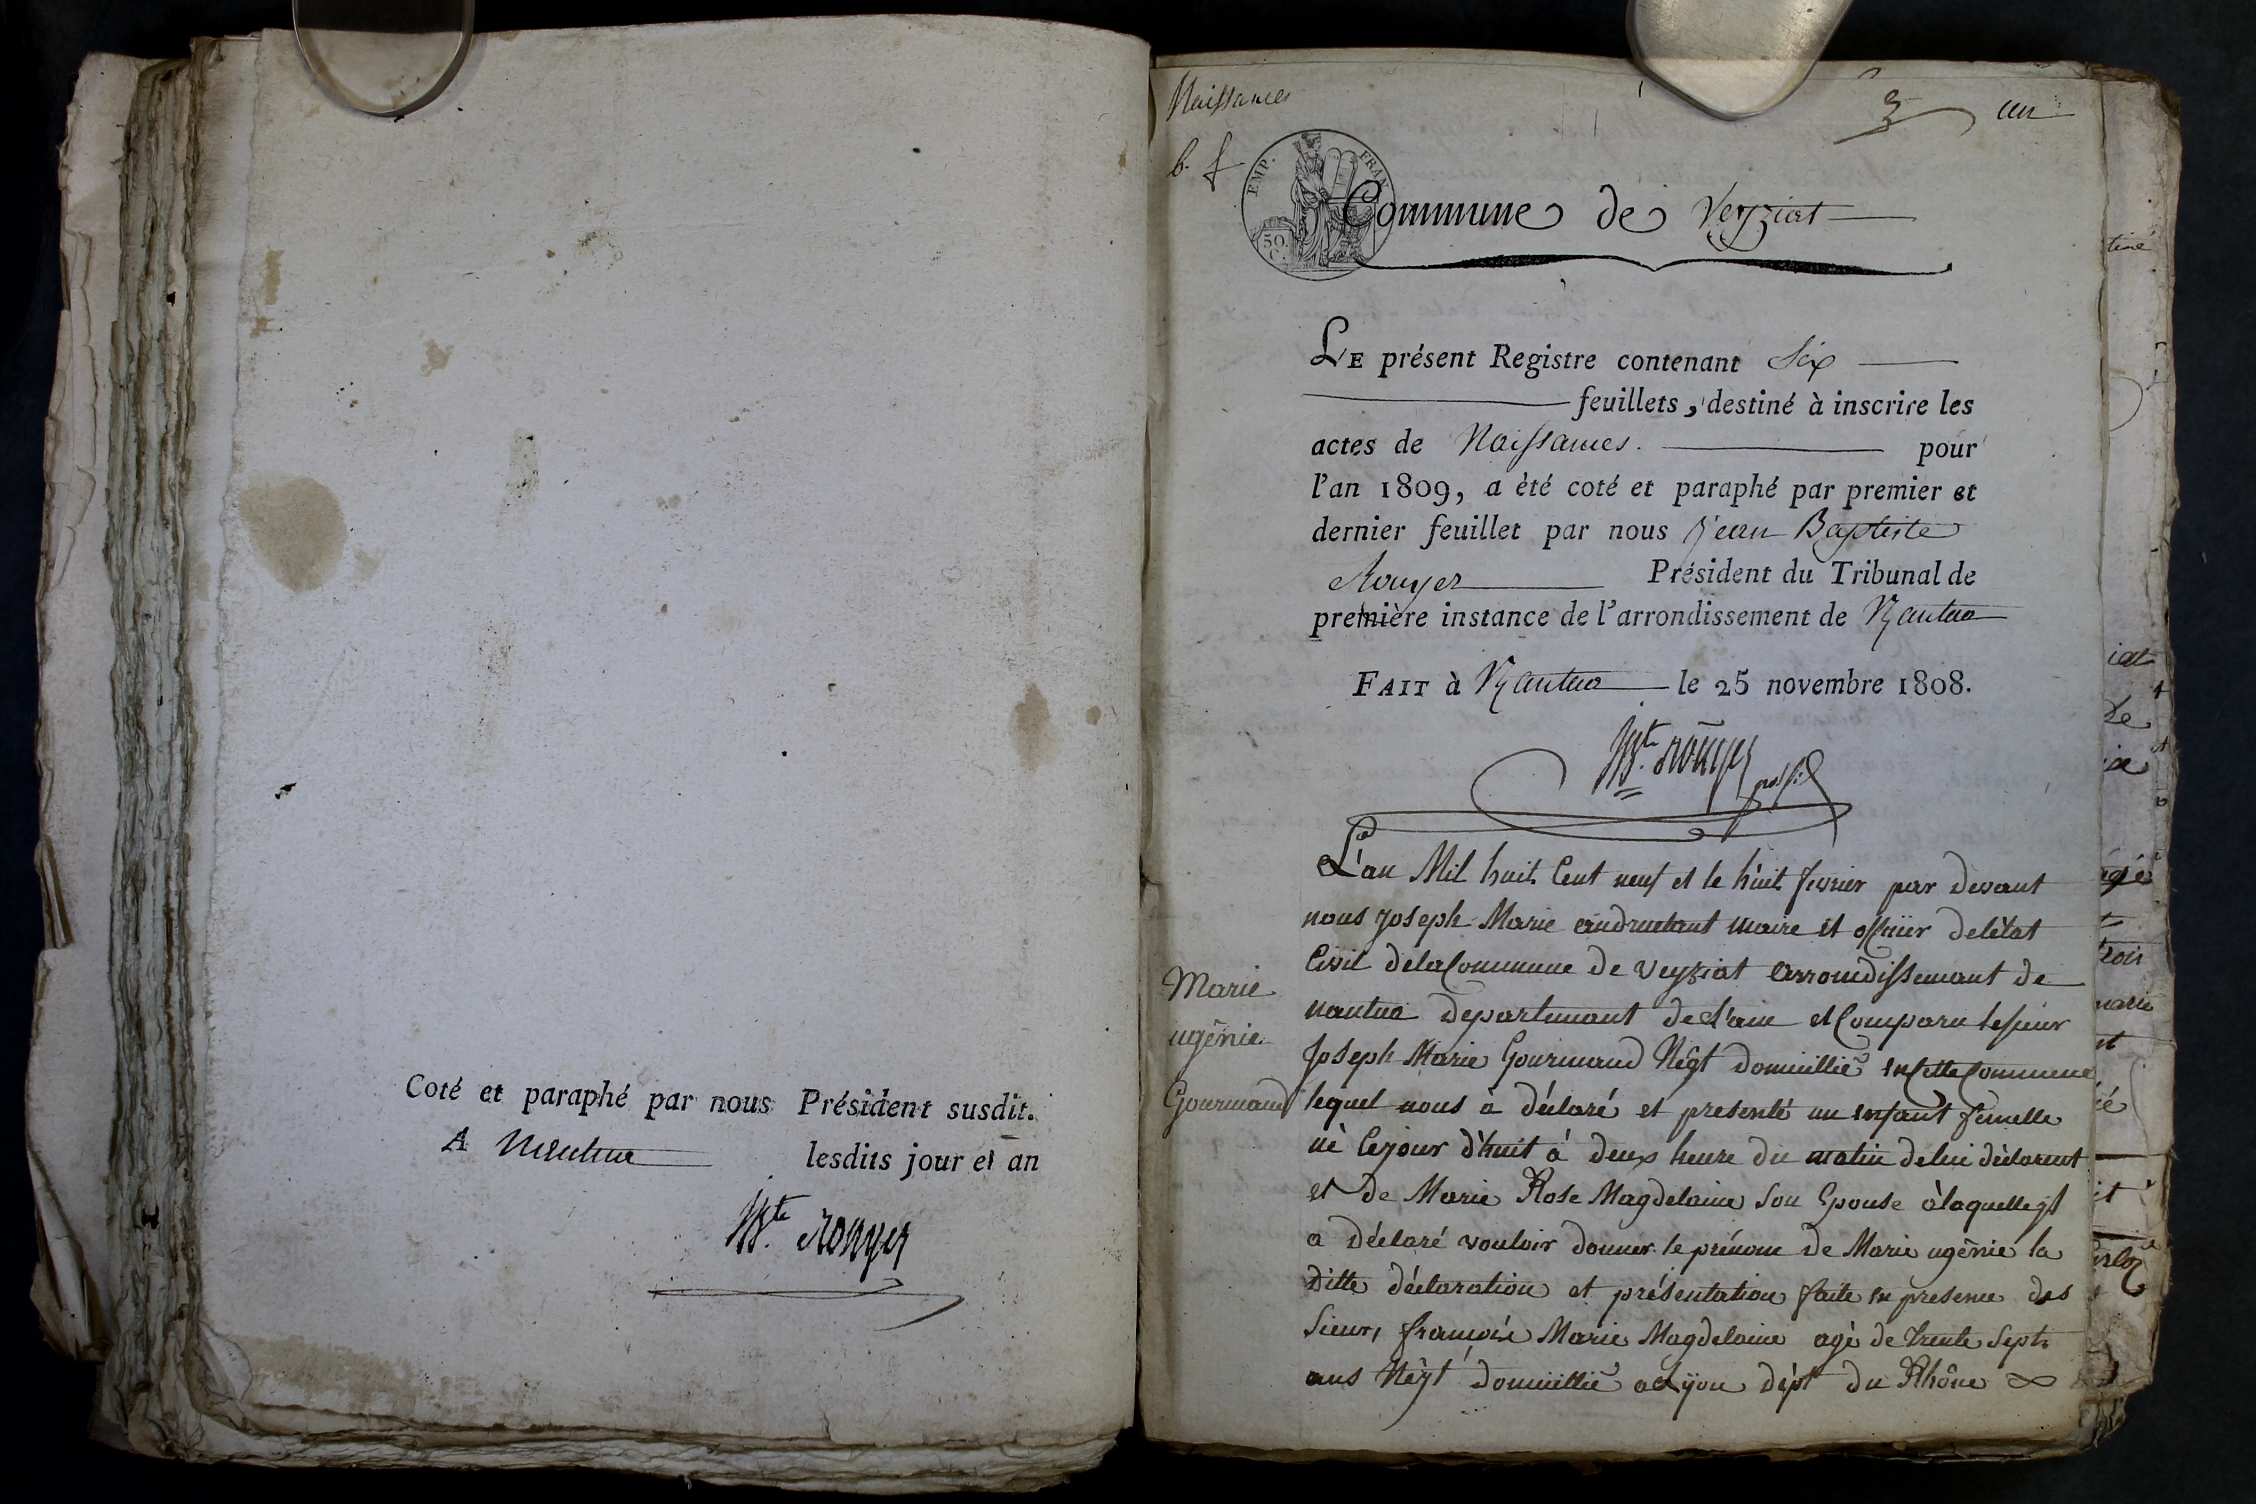 Coté et paraphé par nous Président susdit.
A Nantua lesdits jour et an
JBte. Rouyer
Naissances
6. f
un
EMP. FRAN.
50. C.
Commune de Veyziat
LE présent Registre contenant Six
feuillets, destiné à inscrire les
actes de Naissances. pour
l'an 1809, a été coté et paraphé par premier et
dernier feuillet par nous Jean Baptiste
Rouyer Président du Tribunal de
première instance de l'arrondissement de Nantua
FAIT à Nantua le 25 novembre 1808.
JBte. Rouyer
L'an Mil huit Cent neuf et le huit fevrier par devant
nous Joseph Marie maire et officier deletat
Civil delaCommune de Veyziat arrondissemant de
nantua departemant de l'ain et Comparu lesieur
Marie
ugénie
Gourmand
Joseph Marie Gourmand Négt domicillié enCette Commune
lequel nous a déclaré et presenté un enfant femelle
né Cejour d'huit à deux heure du matin delui déclarent
et de Marie Rose Magdelaine son Epouse àlaquelle jl
a déclaré vouloir donner le prénom de Marie ugénie la
ditte déclaration et présentation faite en presence des
sieur, françois Marie Magdelaine agé de trente sept
ans Négt domicillié a Lyon dépt du Rhône